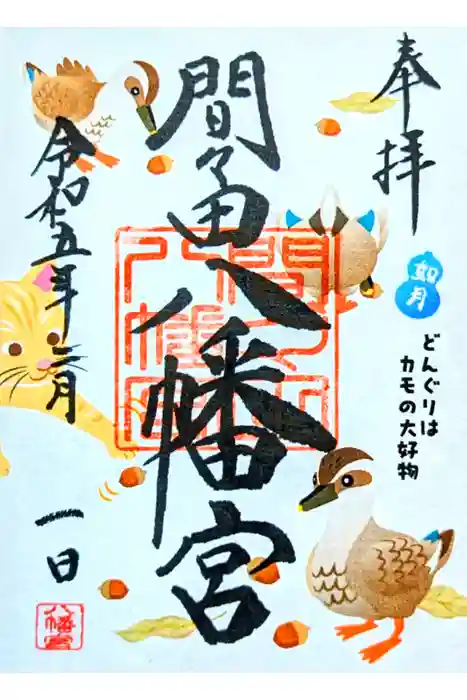 奉拝
如月
どんぐりは
カモの大好物
間々田八幡宮
令和五年二月
一日
八幡宮